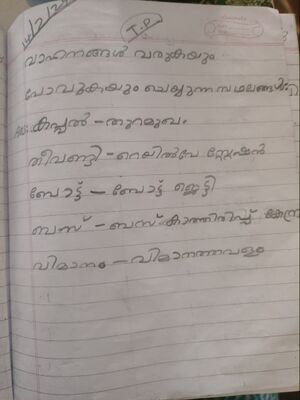 14/2/24
T.P
വാഹനങ്ങൾ വരുകയും
പോവുകയും ചെയ്യുന്ന സ്ഥലങ്ങൾ:
കപ്പൽ - തുറമുഖം
തീവണ്ടി - റെയിൽവേ സ്റ്റേഷൻ
ബോട്ട് - ബോട്ട് ജെട്ടി
ബസ് - ബസ് കാത്തിരിപ്പ് കേന്ദ്ര
വിമാനം - വിമാനത്താവളം